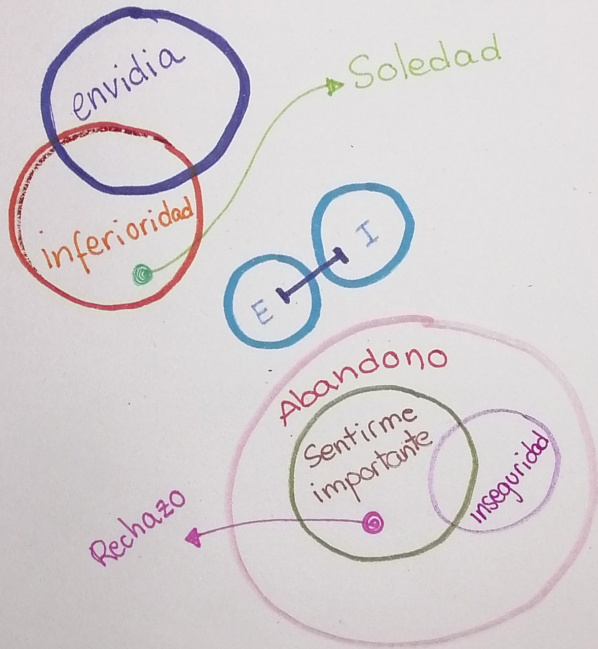 envidia
Soledad
inferioridad
I
E
Abandono
Sentirme
importante
inseguridad
Rechazo